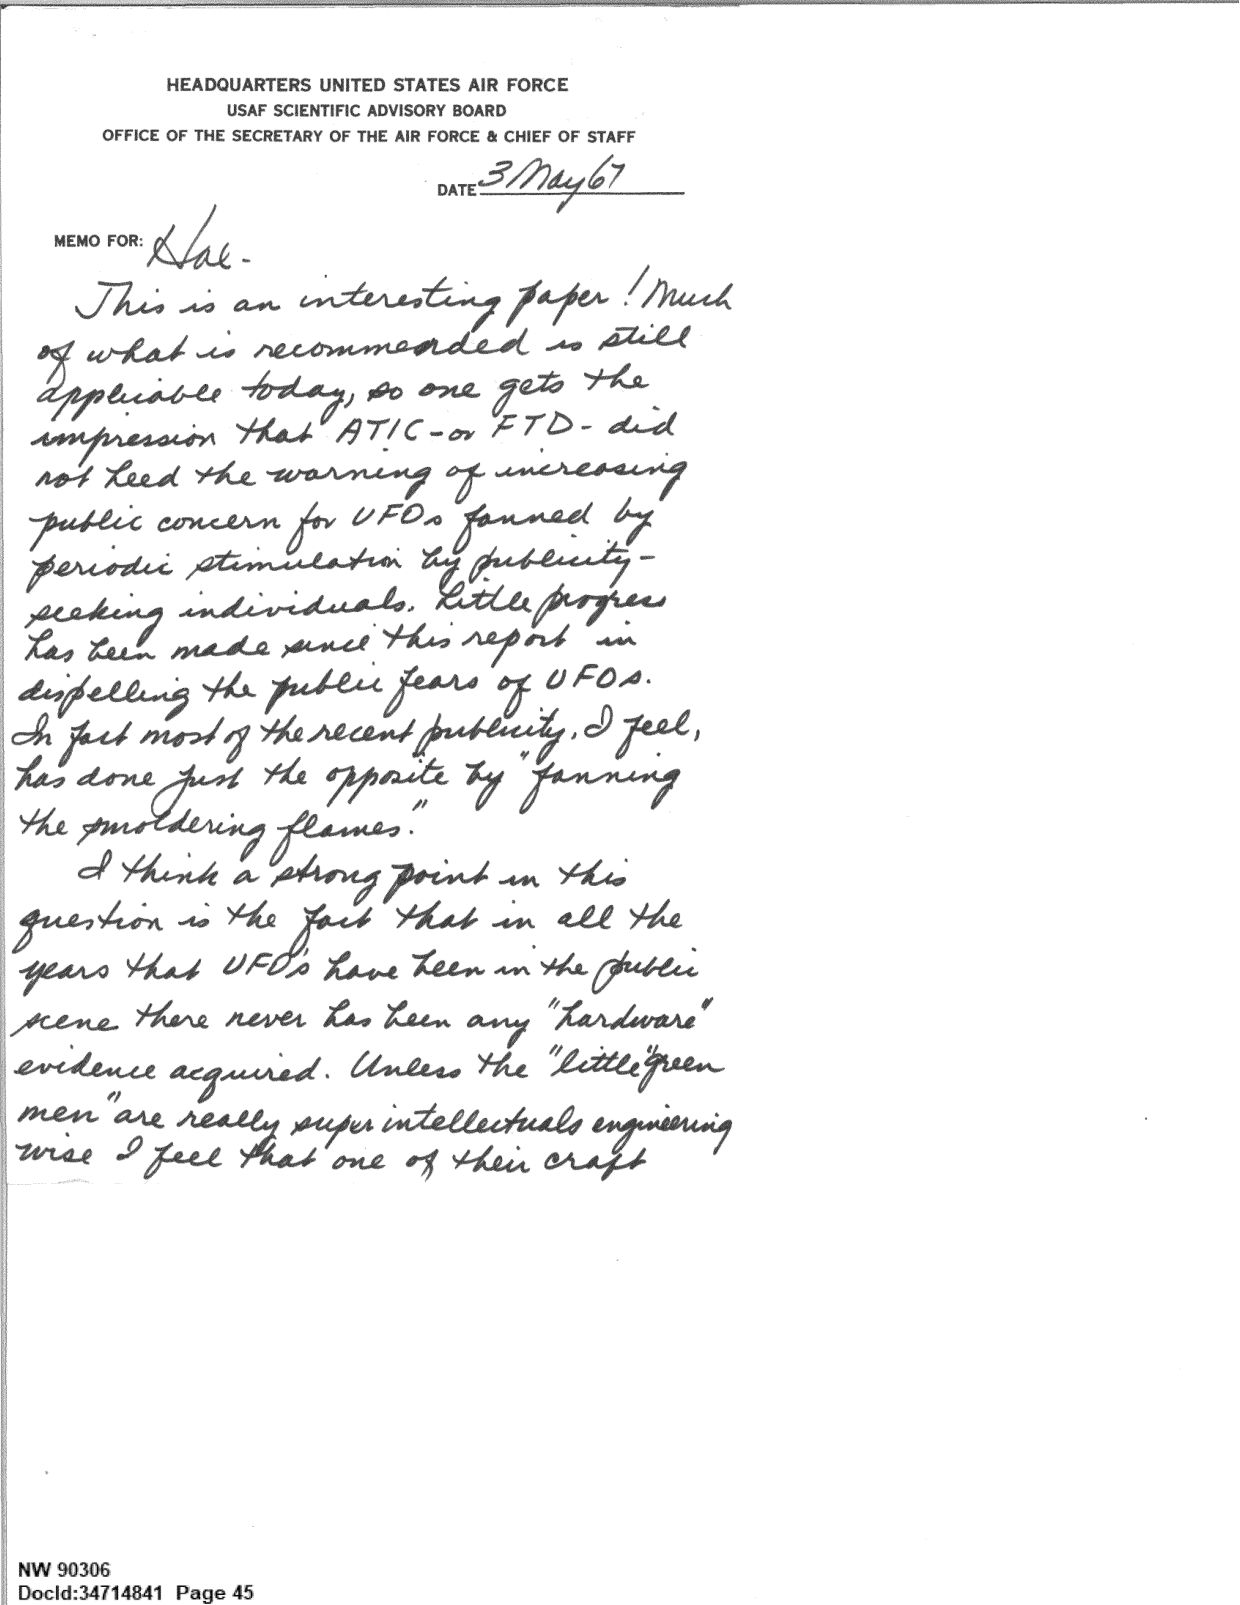 HEADQUARTERS UNITED STATES AIR FORCE
USAF SCIENTIFIC ADVISORY BOARD
OFFICE OF THE SECRETARY OF THE AIR FORCE & CHIEF OF STAFF
DATE 3 May 67
MEMO FOR: Hal -
This is an interesting paper! Much
of what is recommended is still
applicable today, so one gets the
impression that ATIC - or FTD - did
not heed the warning of increasing
public concern for UFOs fanned by
periodic stimulation by publicity-
seeking individuals. Little progress
has been made since this report in
dispelling the public fears of UFOs.
In fact most of the recent publicity, I feel,
has done just the opposite by "fanning
the smoldering flames."
I think a strong point in this
question is the fact that in all the
years that UFO's have been in the public
scene there never has been any "hardware"
evidence acquired. Unless the "little "green
men" are really super intellectuals engineering
wise I feel that one of their craft
NW 90306
DocId:34714841 Page 45